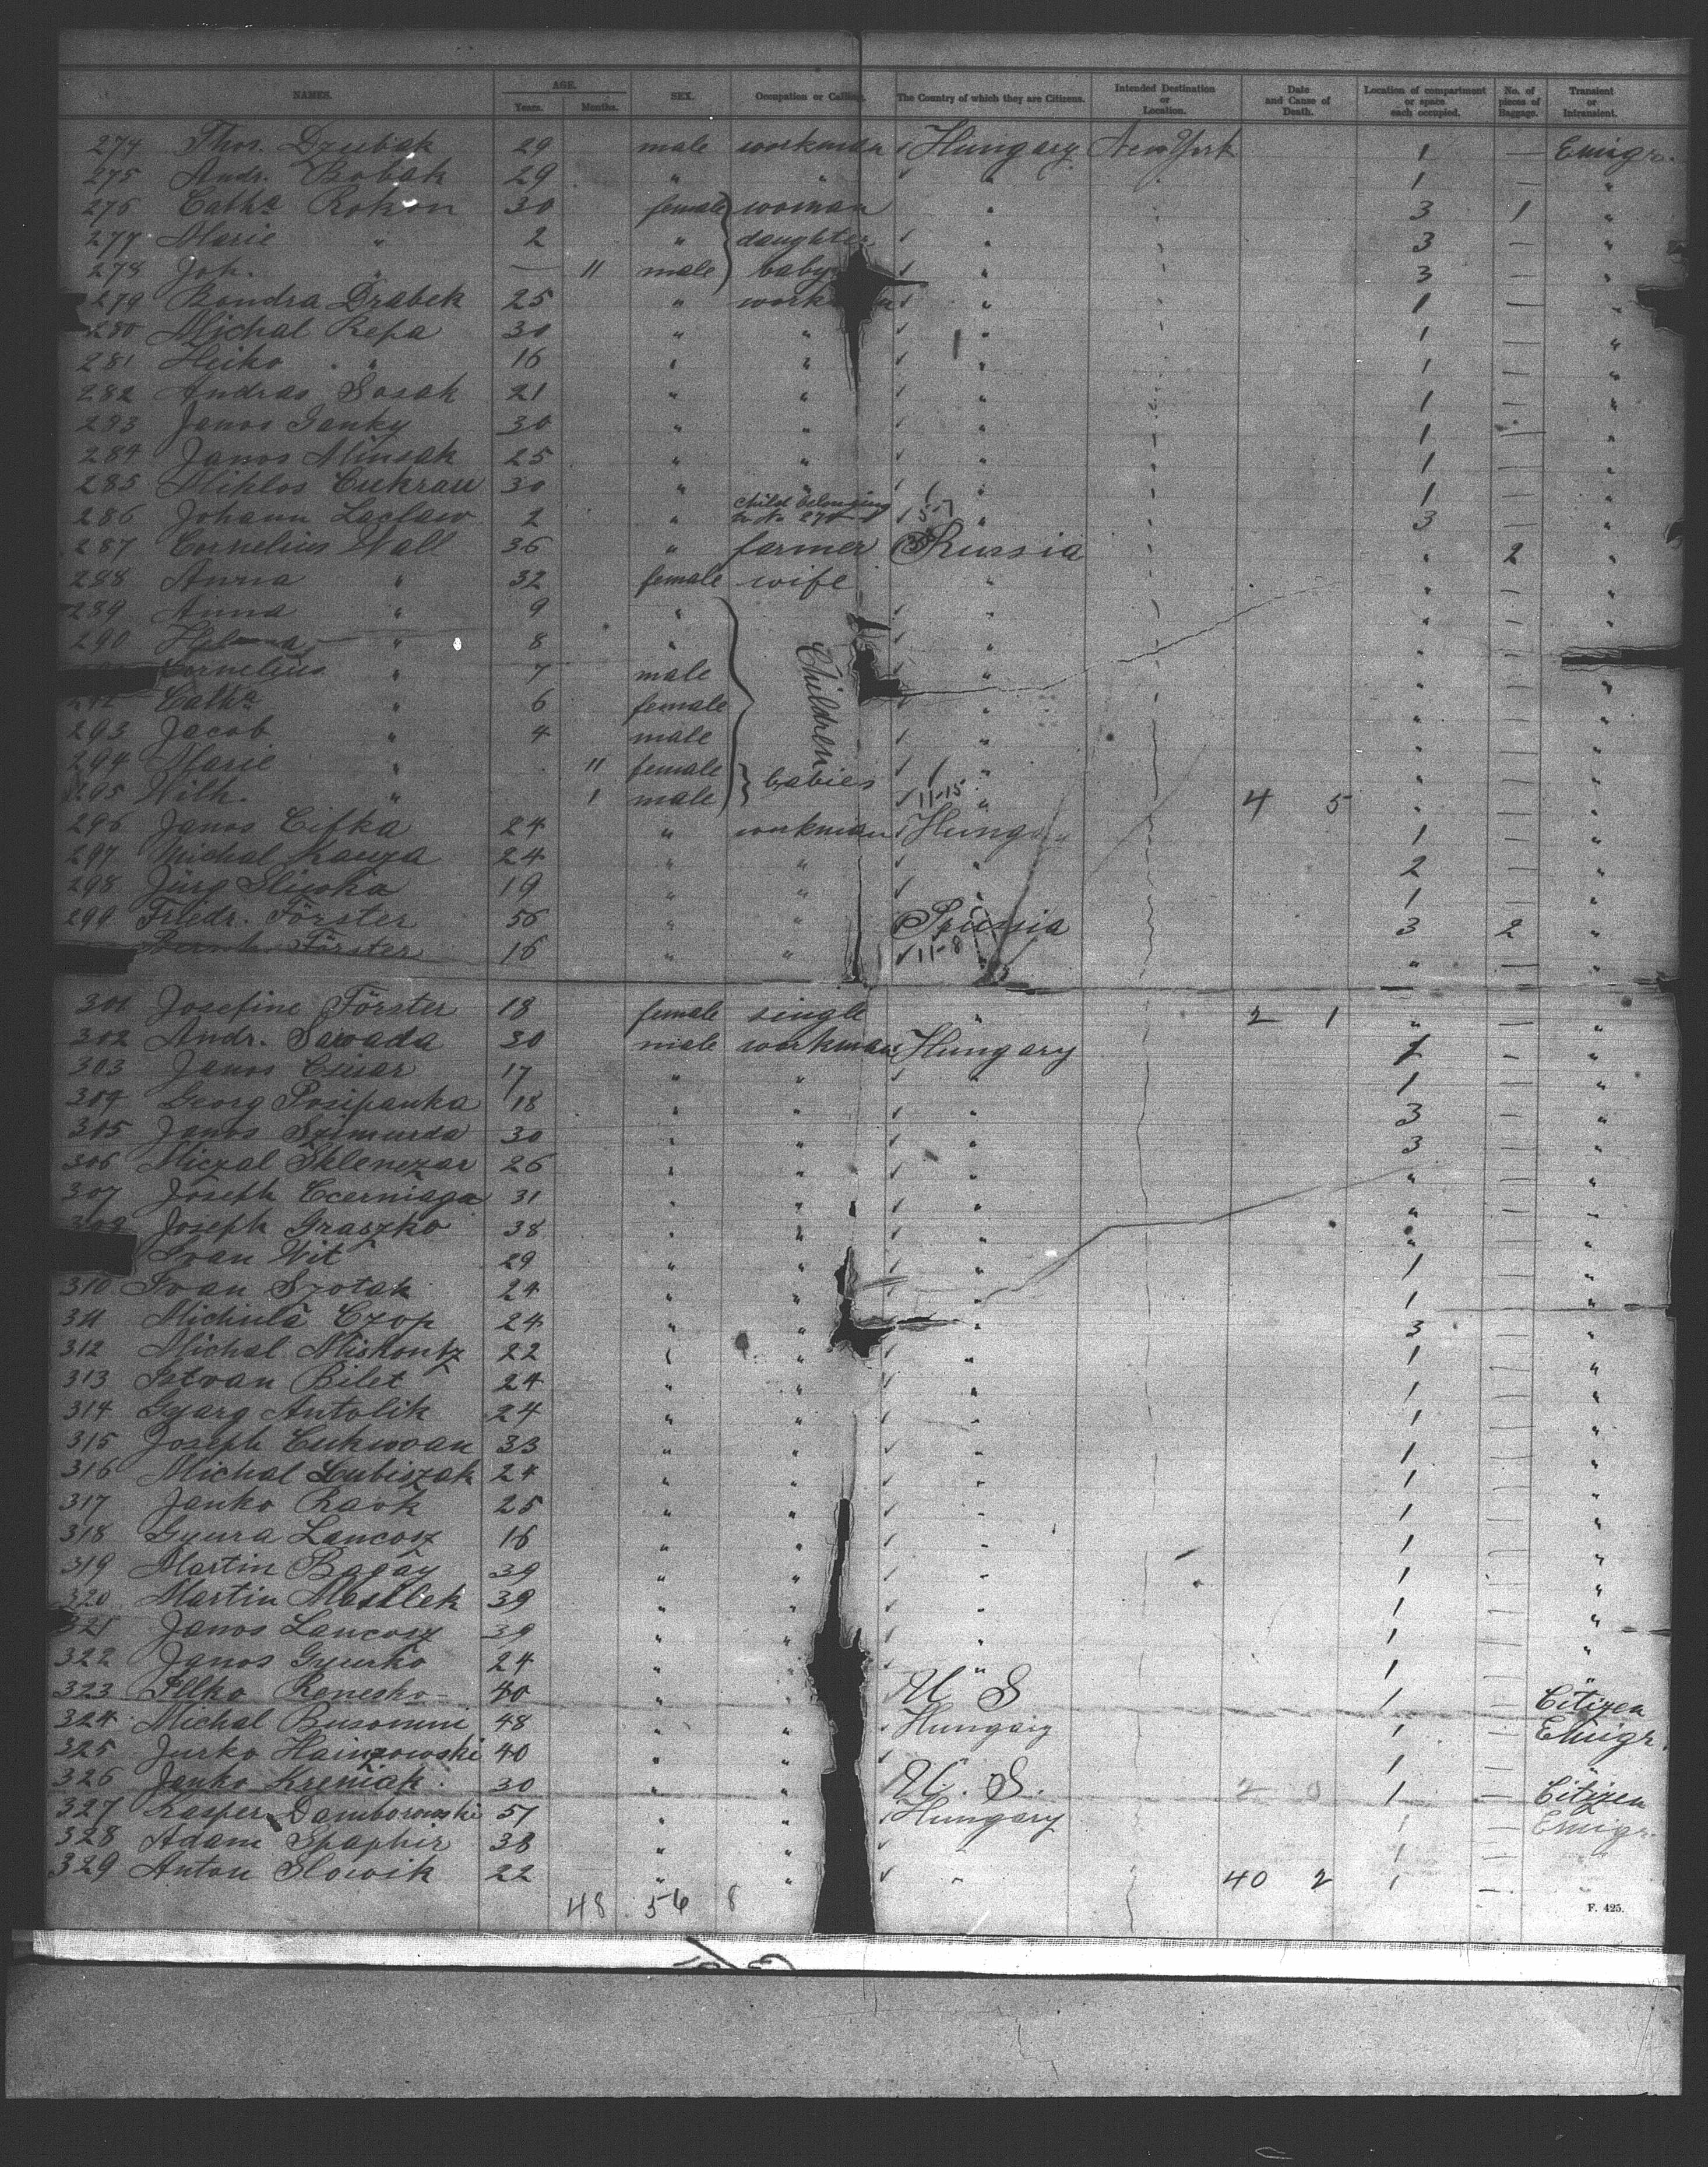 NAMES. AGE. Years. Months. SEX. Occupation or Calling. The Country of which they are Citizens. Intended Destination or Location. Date and Cause of Death. Location of compartment or space each occupied. No. of pieces of Baggage. Transient or Intransient.
274 Thos. Dzubak 29 male workman ✓ Hungary New York 1 — Emigr.
275 Andr. Bobak 29 " " ✓ " 1 — "
276 Catha Rokon 30 female woman " 3 1 "
277 Marie " 2 " daughter ✓ " 3 — "
278 Joh. " — 11 male baby ✓ " 3 — "
279 Bondra Drabek 25 " ✓ " 1 — "
280 Michal Repa 30 " " ✓ " 1 — "
281 Heiko " 16 " " ✓ " 1 — "
282 Andras Sosak 21 " " ✓ " 1 — "
293 Janos Janky 30 " " ✓ " 1 — "
284 Janos Minsak 25 " " ✓ " 1 — "
285 Miklos Cukrau 30 " " ✓ " 1 — "
286 Johann Laclaw 2 " child belonging to No 276 ✓ 5-7 " 3 — "
287 Cornelius Wall 36 " farmer Russia " 2 "
288 Anna " 32 female wife " " — "
289 Anna " 9 " ✓ " " — "
290 Helena " 8 " ✓ " " — "
Cornelius " 7 male Children ✓ " " "
292 Catha " 6 female ✓ " " — "
293 Jacob " 4 male ✓ " " — "
294 Marie " 11 female babies ✓ " " — "
295 Wilh. " 1 male ✓ 11-15 " 4 5 " — "
296 Janos Cifka 24 " workman ✓ Hungary 1 — "
297 Michal Kauza 24 " " ✓ " 2 — "
298 Jürg Sliwka 19 " " ✓ " 1 — "
299 Friedr. Förster 56 " " Prussia 3 2 "
Bernh. Förster 16 " " ✓ 11-8 " — "
301 Josefine Förster 18 female single " 2 1 " — "
302 Andr. Sawada 30 male workman Hungary 1 - "
303 Janos Cisar 17 " " ✓ " 1 — "
304 Georg Posipanka 18 " " ✓ " 3 — "
305 Janos Szimurda 30 " " ✓ " 3 — "
306 Miczal Sklenczar 26 " " ✓ " " — "
307 Joseph Czerniaga 31 " " ✓ " " — "
Joseph Graszko 38 " " ✓ " " — "
Ivan Wit 29 " " ✓ " 1 — "
310 Ivan Szotak 24 " " ✓ " 1 — "
311 Michula Czop 24 " " " 3 — "
312 Michal Miskontz 22 " " ✓ " 1 — "
313 Istvan Bilet 24 " " ✓ " 1 — "
314 Gyarg Antolik 24 " " ✓ " 1 — "
315 Joseph Cukwoan 33 " " ✓ " 1 — "
316 Michal Lubiszak 24 " " ✓ " 1 — "
317 Janko Raok 25 " " ✓ " 1 — "
318 Gyura Lancosz 16 " " ✓ " 1 — "
319 Martin Bagay 39 " " ✓ " 1 — "
320 Martin Maslek 39 " " ✓ " 1 — "
321 Janos Lancosz 39 " " ✓ " 1 — "
322 Janos Gyurko 24 " " ✓ " 1 — "
323 Illko Renesko 40 " " U S 1 — Citizen
324 Michal Busonini 48 " " Hungary 1 — Emigr.
325 Jurko Hainzowski 40 " " ✓ " 1 — "
326 Janko Kreniak 30 " " U. S. 2 0 1 — Citizen
327 Kasper Damborowski 51 " " Hungary 1 — Emigr.
328 Adam Spaphir 38 " " ✓ 1 —
329 Anton Slowik 22 " " ✓ " 40 2 1 — "
48 56 8
F. 425.